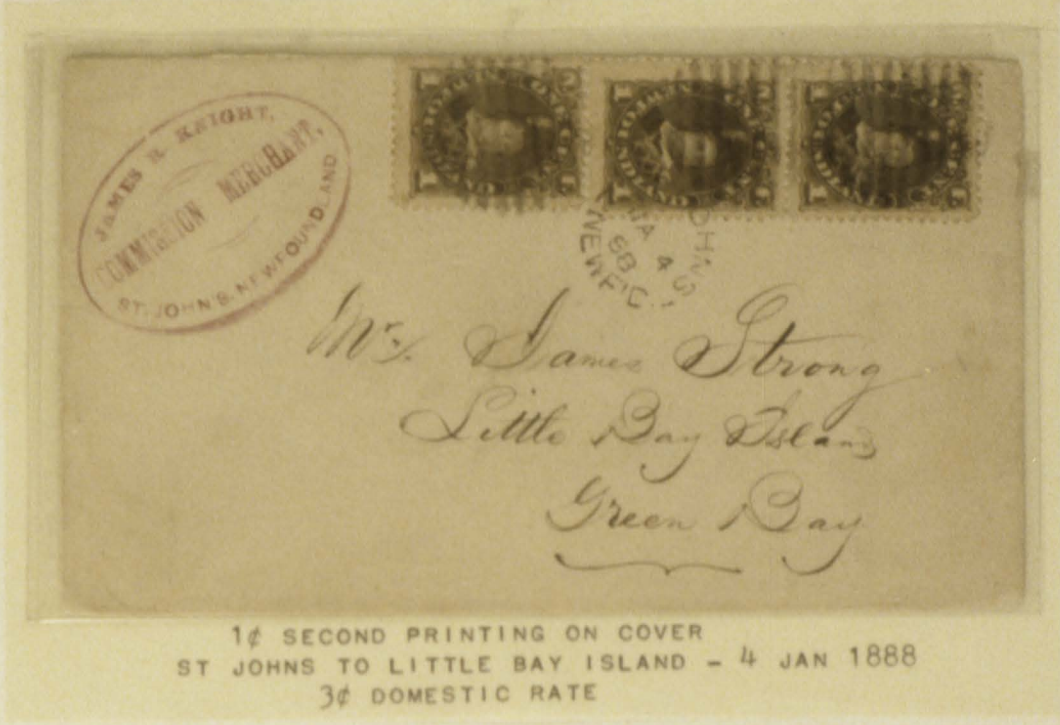 JAMES R. KNIGHT,
COMMISSION MERCHANT,
ST. JOHN'S, NEWFOUNDLAND
JA 4
88
NEWF'D
Mr. James Strong
Little Bay Island
Green Bay
1¢ SECOND PRINTING ON COVER
ST JOHNS TO LITTLE BAY ISLAND – 4 JAN 1888
3¢ DOMESTIC RATE